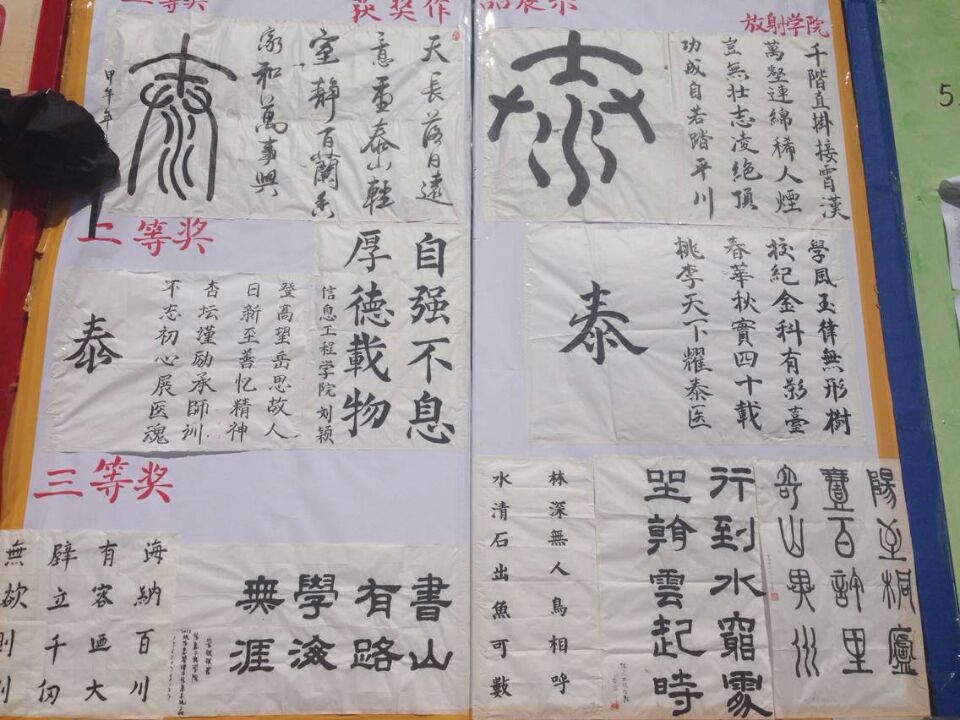 二等奖
获奖作品展示
放射学院
泰
天長落日遠
意重泰山輕
室靜百蘭香
家和萬事興
甲午年
泰
千階直掛接霄漢
萬壑連綿稀人煙
豈無壯志凌絶頂
功成自若踏平川
二等奖
自强不息
厚德載物
信息工程学院刘颖
登高望岳思故人
日新至善忆精神
杏坛谨励承師训
不忘初心展医魂
泰
學風玉律無形樹
校紀金科有影臺
春華秋實四十載
桃李天下耀泰医
泰
三等奖
海納百川
有容廼大
壁立千仞
無欲則剛
書山
有路
學海
無涯
林深無人鳥相呼
水清石出魚可數
行到水窮處
坐看雲起時
陽至桐廬
一百許里
奇山異水
5